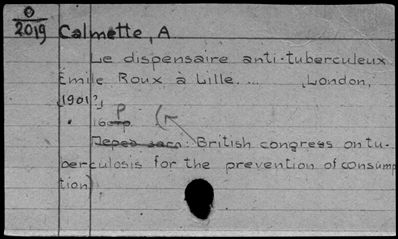 O
2019 Calmette, A
Le dispensaire anti-tuberculeux
Émile Roux à Lille. ... [London,
[1901?]
16 p
(British congress on tu-
berculosis for the prevention of consump
tion)